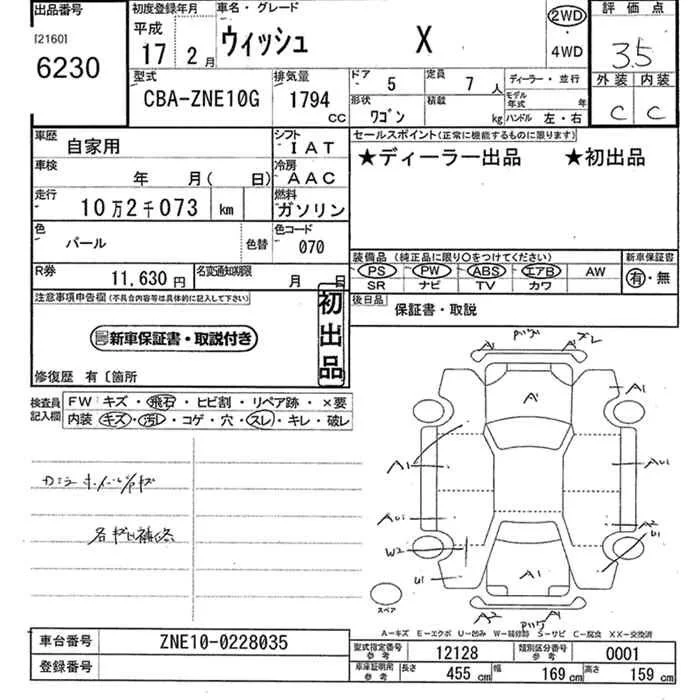 出品番号 初度登録年月 車名・グレード 評価点
[2160] 6230 平成 17 2月 ウィッシュ X 2WD・4WD 3.5
型式 排気量 ドア 5 定員 7人 ディーラー・並行 外装 内装
CBA-ZNE10G 1794 CC 形状 ワゴン 積載 kg モデル年式 年 ハンドル 左・右 C C
車歴 自家用 シフト IAT セールスポイント(正常に機能するものに限ります)
車検 年 月( 日) 冷房 AAC ★ディーラー出品 ★初出品
走行 10万2千073 km 燃料 ガソリン
色 パール 色替 色コード 070
装備品 (純正品に限り○をつけてください) 新車保証書
PS PW ABS エアB AW 有・無
SR ナビ TV カワ
R券 11,630円 名変通知期限 月 日
後日品 保証書・取説
注意事項申告欄(不具合内容等は具体的に記入して下さい) 初出品
新車保証書・取説付き
修復歴 有〔箇所
検査員記入欄 FW:キズ・飛石・ヒビ割・リペア跡・×要
内装 キズ・汚レ・コゲ・穴・スレ・キレ・破レ
バンパ
A A ズレ
A
A1
A1
A2
U1
W2
U1
A1
スペア
A2 バンパ A
A-キズ E-エクボ U-凹み W-補修跡 S-サビ C-腐食 XX-交換済
車台番号 ZNE10-0228035
登録番号
型式指定番号 参考 12128 類別区分番号 参考 0001
車庫証明用 参考 長さ 455 cm 幅 169 cm 高さ 159 cm